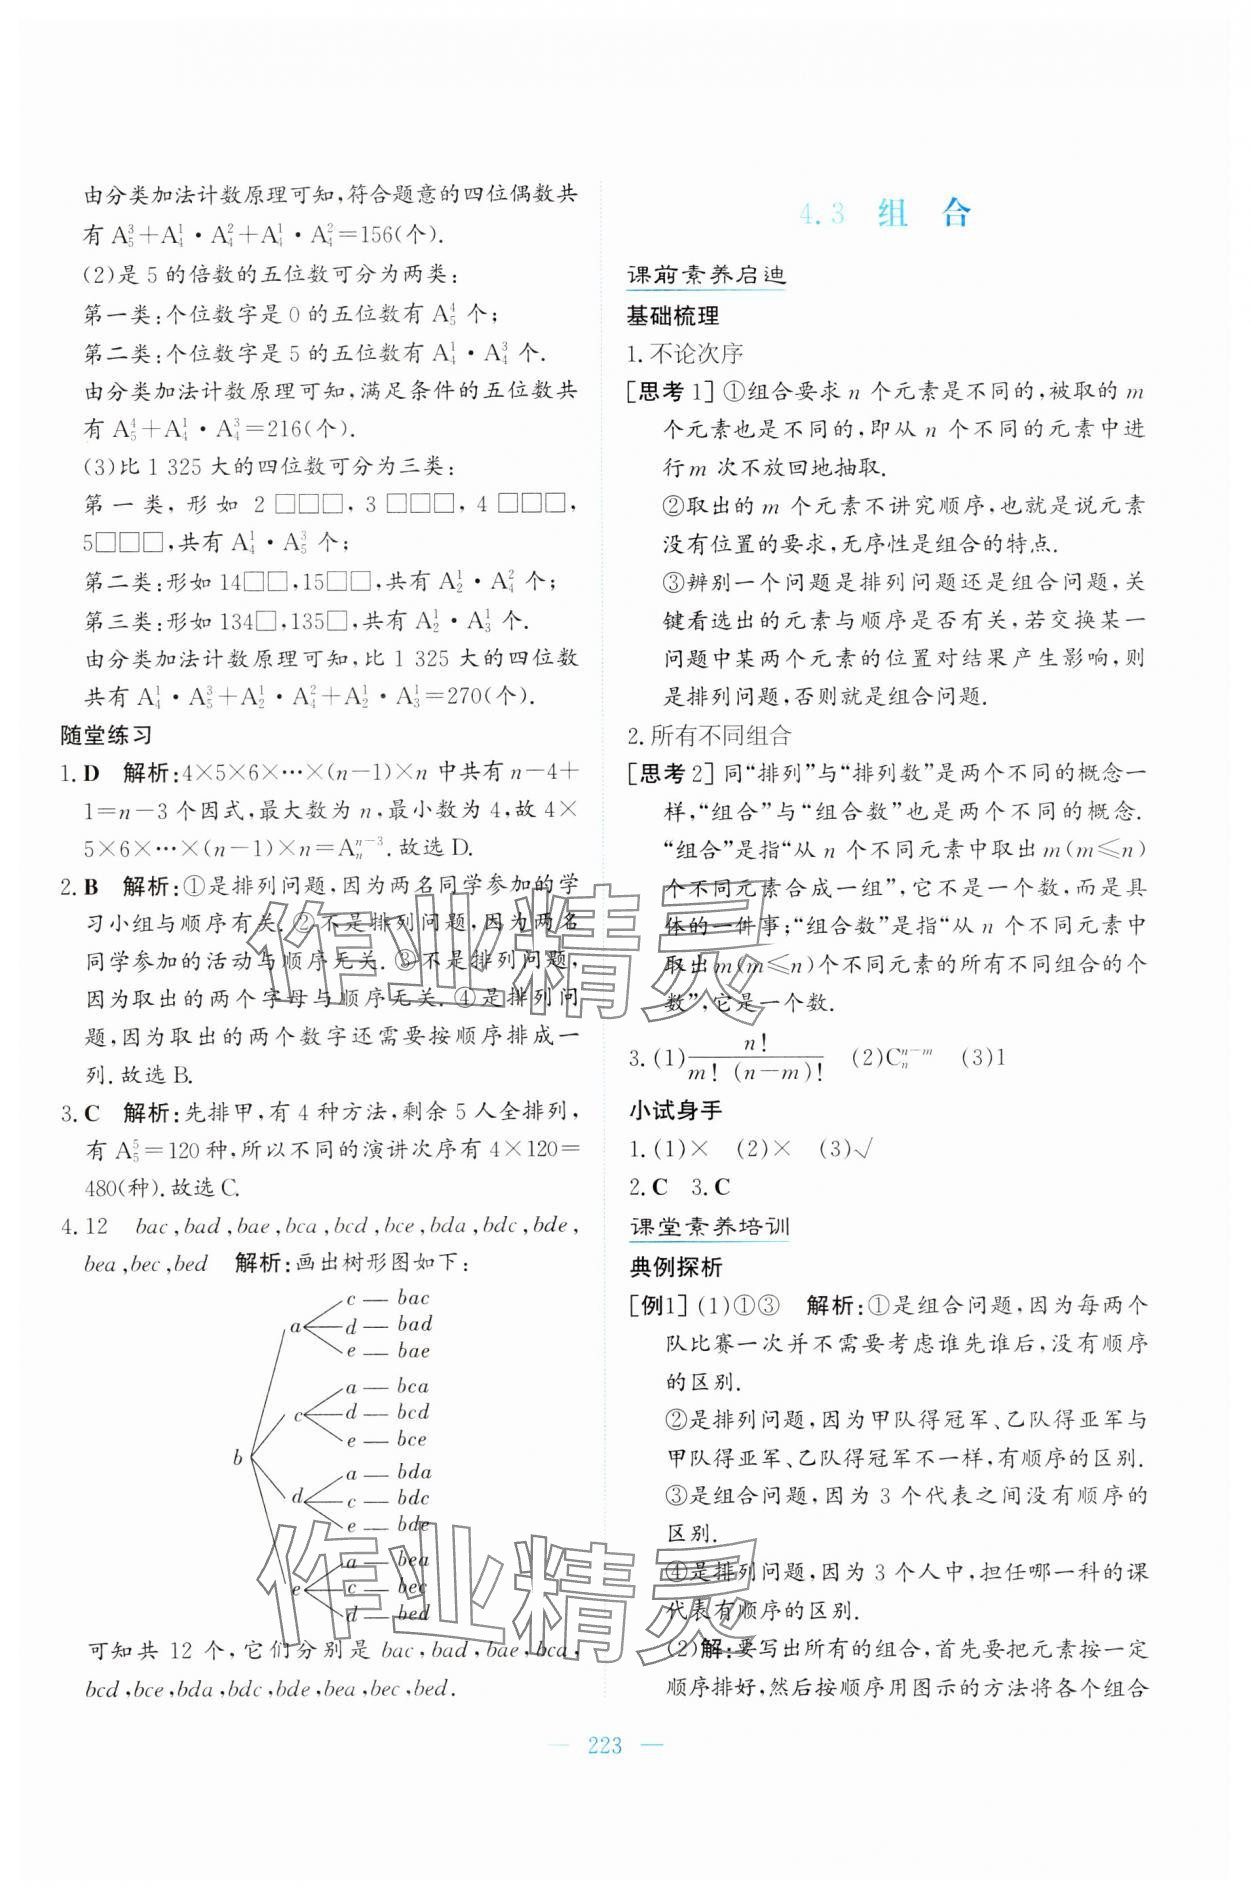 由分类加法计数原理可知,符合题意的四位偶数共
有 A₅³+A₄¹·A₄²+A₄¹·A₄²=156(个).
(2)是 5 的倍数的五位数可分为两类:
第一类:个位数字是 0 的五位数有 A₅⁴ 个;
第二类:个位数字是 5 的五位数有 A₄¹·A₄³ 个.
由分类加法计数原理可知,满足条件的五位数共
有 A₅⁴+A₄¹·A₄³=216(个).
(3)比 1 325 大的四位数可分为三类:
第一类,形如 2 □□□, 3 □□□, 4 □□□,
5□□□,共有 A₄¹·A₅³ 个;
第二类:形如 14□□,15□□,共有 A₂¹·A₄² 个;
第三类:形如 134□,135□,共有 A₂¹·A₃¹ 个.
由分类加法计数原理可知,比 1 325 大的四位数
共有 A₄¹·A₅³+A₂¹·A₄²+A₂¹·A₃¹=270(个).
随堂练习
1. D 解析:4×5×6×⋯×(n-1)×n 中共有 n-4+
1=n-3 个因式,最大数为 n,最小数为 4,故 4×
5×6×⋯×(n-1)×n=Aₙⁿ⁻³.故选 D.
2. B 解析:①是排列问题,因为两名同学参加的学
习小组与顺序有关.②不是排列问题,因为两名
同学参加的活动与顺序无关.③不是排列问题,
因为取出的两个字母与顺序无关.④是排列问
题,因为取出的两个数字还需要按顺序排成一
列.故选 B.
3. C 解析:先排甲,有 4 种方法,剩余 5 人全排列,
有 A₅⁵=120 种,所以不同的演讲次序有 4×120=
480(种).故选 C.
4. 12 bac,bad,bae,bca,bcd,bce,bda,bdc,bde,
bea,bec,bed 解析:画出树形图如下:
c — bac
a d — bad
e — bae
a — bca
c d — bcd
e — bce
b
a — bda
d c — bdc
e — bde
a — bea
e c — bec
d — bed
可知共 12 个,它们分别是 bac,bad,bae,bca,
bcd,bce,bda,bdc,bde,bea,bec,bed.
4.3 组 合
课前素养启迪
基础梳理
1. 不论次序
[思考1] ①组合要求 n 个元素是不同的,被取的 m
个元素也是不同的,即从 n 个不同的元素中进
行 m 次不放回地抽取.
②取出的 m 个元素不讲究顺序,也就是说元素
没有位置的要求,无序性是组合的特点.
③辨别一个问题是排列问题还是组合问题,关
键看选出的元素与顺序是否有关,若交换某一
问题中某两个元素的位置对结果产生影响,则
是排列问题,否则就是组合问题.
2. 所有不同组合
[思考2] 同“排列”与“排列数”是两个不同的概念一
样,“组合”与“组合数”也是两个不同的概念.
“组合”是指“从 n 个不同元素中取出 m(m≤n)
个不同元素合成一组”,它不是一个数,而是具
体的一件事;“组合数”是指“从 n 个不同元素中
取出 m(m≤n)个不同元素的所有不同组合的个
数”,它是一个数.
3. (1) n!/(m!(n-m)!) (2)Cₙⁿ⁻ᵐ (3)1
小试身手
1. (1)× (2)× (3)√
2. C 3. C
课堂素养培训
典例探析
[例1] (1)①③ 解析:①是组合问题,因为每两个
队比赛一次并不需要考虑谁先谁后,没有顺序
的区别.
②是排列问题,因为甲队得冠军、乙队得亚军与
甲队得亚军、乙队得冠军不一样,有顺序的区别.
③是组合问题,因为 3 个代表之间没有顺序的
区别.
④是排列问题,因为 3 个人中,担任哪一科的课
代表有顺序的区别.
(2)解:要写出所有的组合,首先要把元素按一定
顺序排好,然后按顺序用图示的方法将各个组合
— 223 —
作业精灵
作业精灵